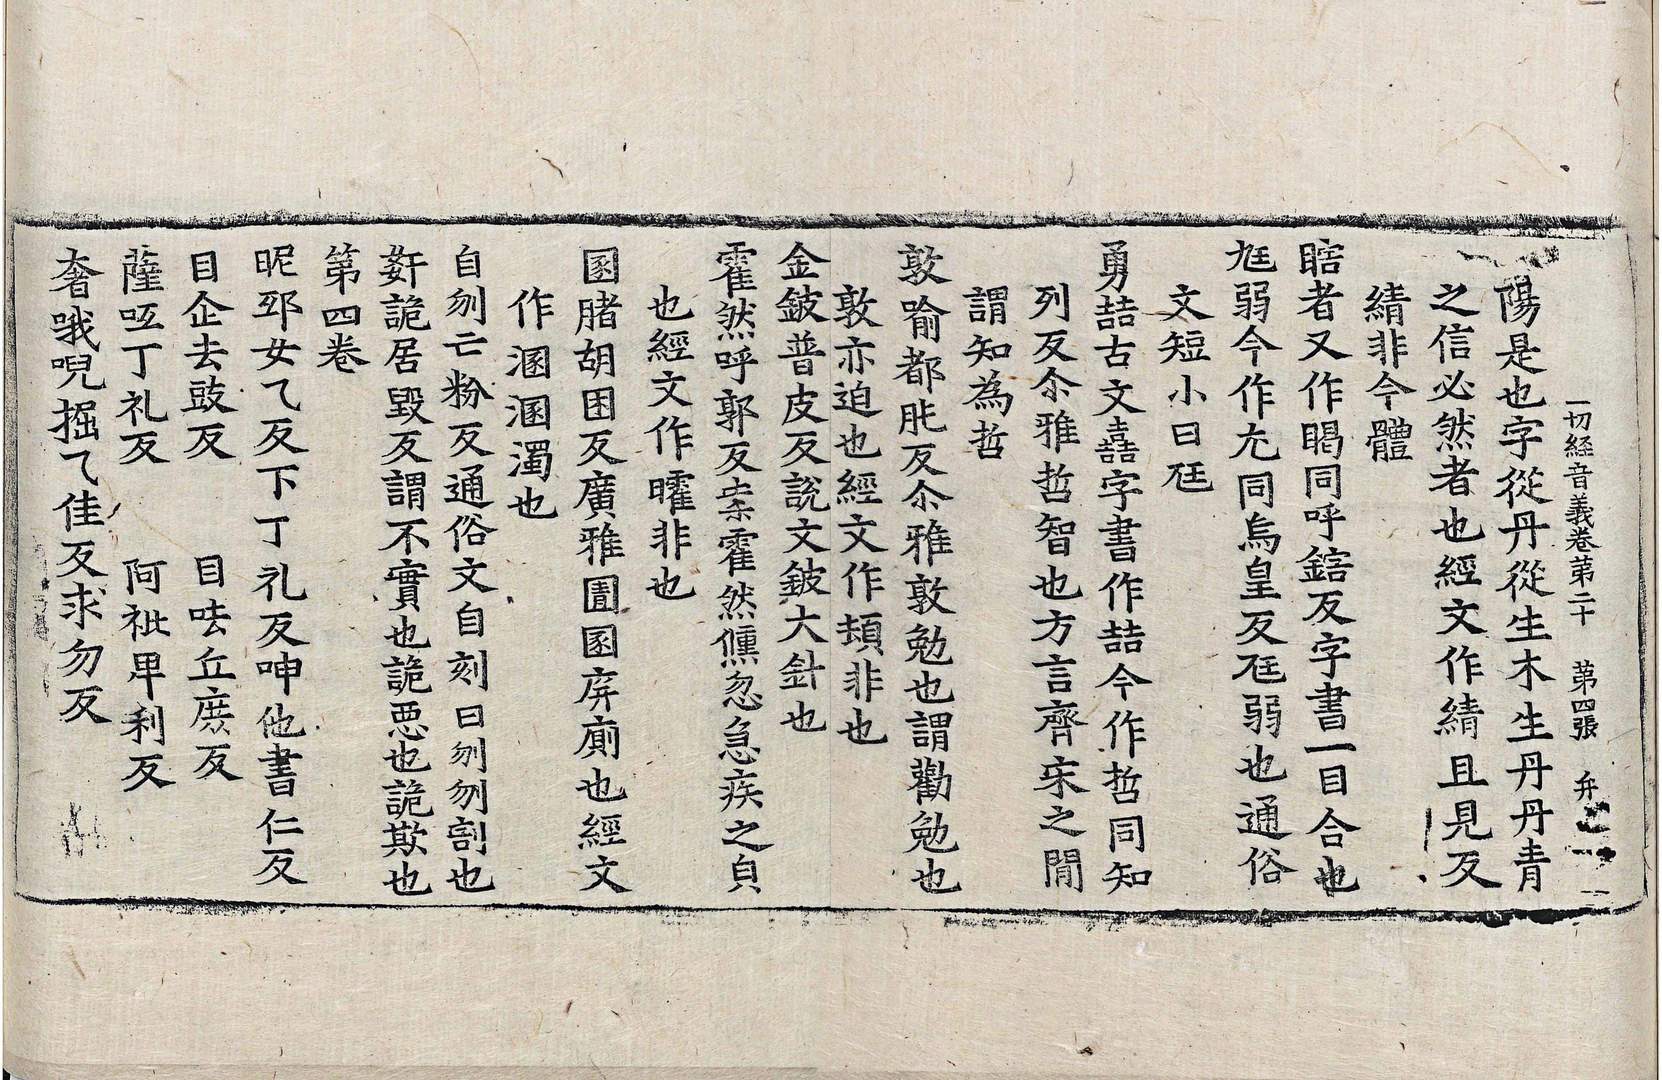 一切經音義卷第二十 第四張 弁
陽是也字從丹從生木生丹丹青
之信必然者也經文作綪且見反
綪非今體
瞎者又作𥈭同呼鎋反字書一目合也
尫弱今作尢同烏皇反尫弱也通俗
文短小曰尫
勇喆古文嚞字書作喆今作哲同知
列反尒雅哲智也方言齊宋之閒
謂知為哲
敦喻都肫反尒雅敦勉也謂勸勉也
敦亦迫也經文作頓非也
金鈹普皮反說文鈹大針也
霍然呼郭反案霍然儵忽急疾之皃
也經文作㬦非也
圂豬胡困反廣雅圊圂屏廁也經文
作溷溷濁也
自刎亡粉反通俗文自刻曰刎刎割也
姧詭居毀反謂不實也詭惡也詭欺也
第四卷
昵邳女乁反下丁礼反呻他書仁反
目企去豉反 目呿丘庶反
薩呧丁礼反 阿祉卑利反
奢哦唲掘乁佳反求勿反